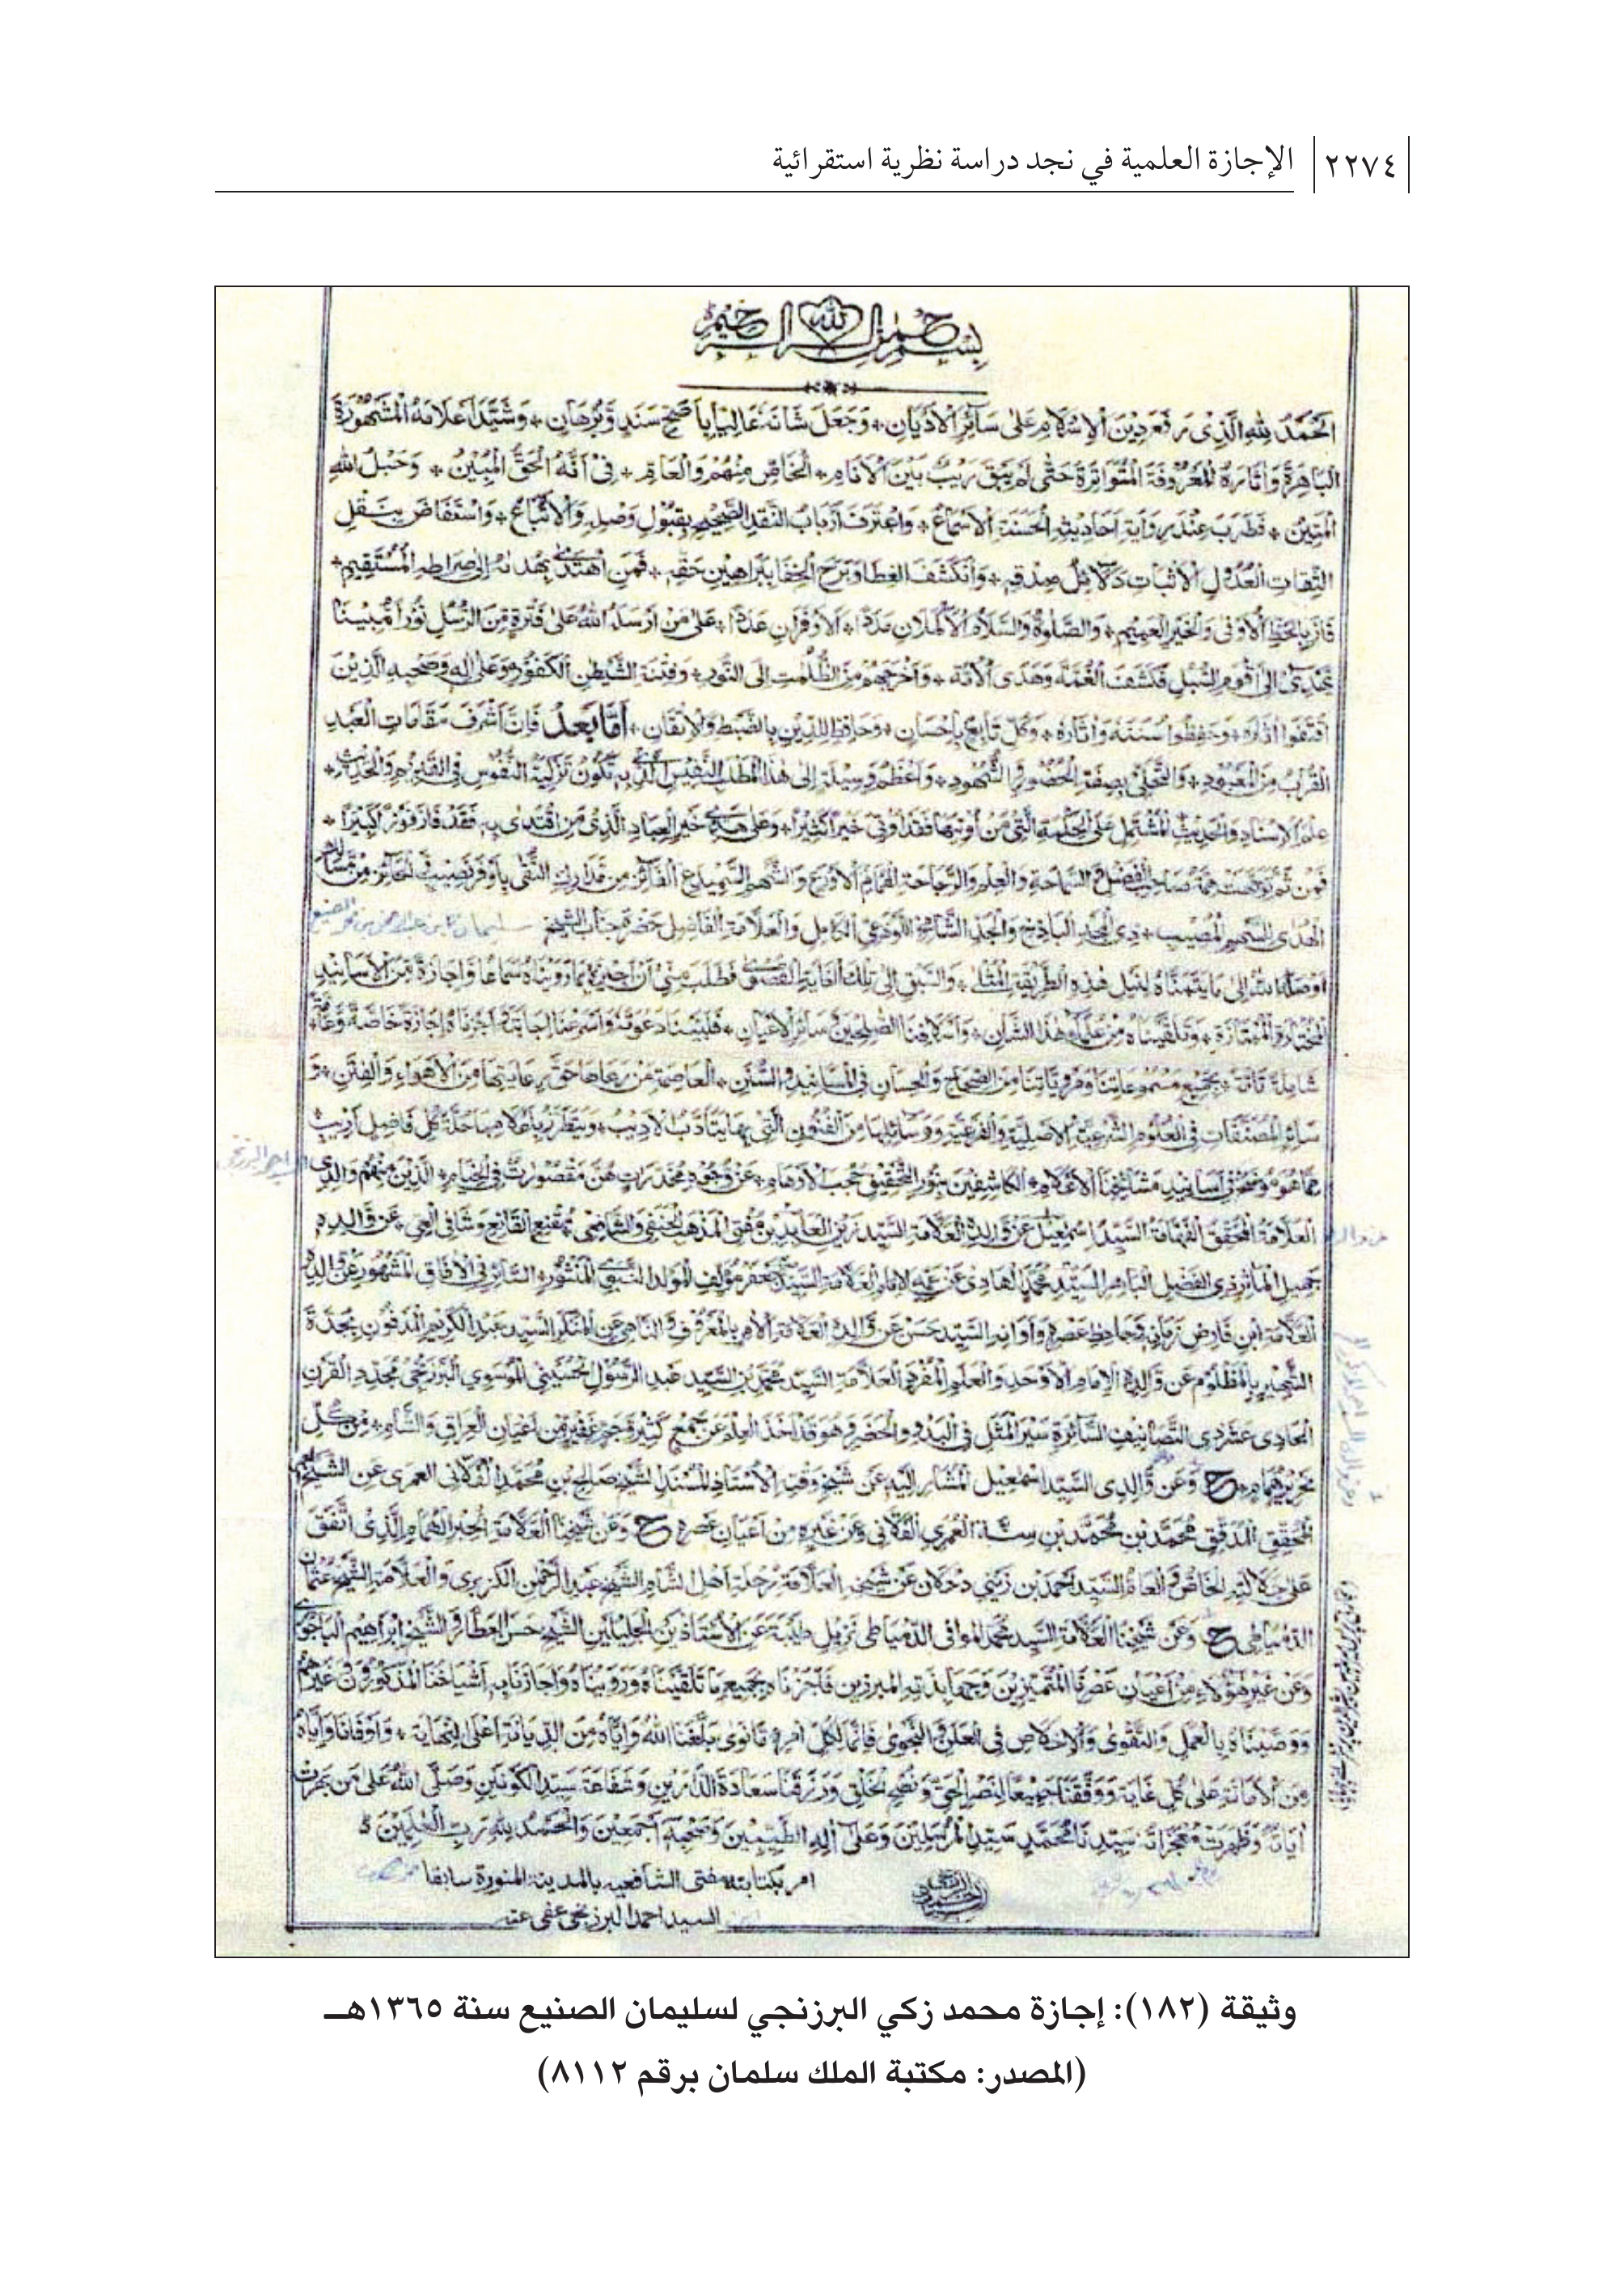 ٢٢٧٤ الإجازة العلمية في نجد دراسة نظرية استقرائية
بسم الله الرحمن الرحيم
الحَمْدُ لِلّهِ الَّذِى رَفَعَ دِيْنَ الْاِسْلَامِ عَلٰى سَائِرِ الْاَدْيَانِ * وَجَعَلَ شَانَهٗ عَالِيًا بِاَصَحِّ سَنَدٍ وَّبُرْهَانٍ * وَشَيَّدَ اَعْلَامَهُ الْمَشْهُوْرَةَ
البَاهِرَةَ وَاٰثَارَهُ الْمَعْرُوْفَةَ الْمُتَوَاتِرَةَ حَتّٰى لَمْ يَبْقَ رَيْبٌ بَيْنَ الْاَنَامِ * الْخَاصِّ مِنْهُمْ وَالْعَامِّ * فِىْ اَنَّهُ الْحَقُّ الْمُبِيْنُ * وَحَبْلُ اللهِ
الْمَتِيْنُ * فَطَرِبَ عِنْدَ رِوَايَةِ اَحَادِيْثِهِ الْحَسَنَةِ الْاَسْمَاعُ * وَاعْتَرَفَ اَرْبَابُ النَّقْدِ الصَّحِيْحِ بِقَبُوْلِ وَصْلِهِ وَالْاتِّبَاعِ * وَاسْتَفَاضَ بِنَقْلِ
الثِّقَاتِ الْعُدُوْلِ الْاَثْبَاتِ دَلَائِلُ صِدْقِهِ * وَانْكَشَفَ الْغِطَا وَبَرِحَ الْخَفَا بِبَرَاهِيْنِ حَقِّهِ * فَمَنِ اهْتَدٰى بِهُدَاهُ اِلٰى صِرَاطِهِ الْمُسْتَقِيْمِ *
فَازَ بِالْحَظِّ الْاَوْفٰى وَالْخَيْرِ الْعَمِيْمِ * وَالصَّلٰوةُ وَالسَّلَامُ الْاَكْمَلَانِ مَدَدًا * الْاَوْفَرَانِ عَدَدًا * عَلٰى مَنْ اَرْسَلَهُ اللهُ عَلٰى فَتْرَةٍ مِّنَ الرُّسُلِ نُوْرًا مُّبِيْنًا
اِلٰى اَقْوَمِ السُّبُلِ فَكَشَفَ الْغُمَّةَ وَهَدَى الْاُمَّةَ * وَاَخْرَجَهُمْ مِنَ الظُّلُمٰتِ اِلَى النُّوْرِ * وَفِتْنَةِ الشَّيْطٰنِ الْكَفُوْرِ وَعَلٰى اٰلِهِ وَصَحْبِهِ الَّذِيْنَ
اقْتَفَوْا وَحَفِظُوْا سُنَنَهٗ وَاٰثَارَهٗ * وَكُلِّ تَابِعٍ بِاِحْسَانٍ * وَحَافِظٍ لِلدِّيْنِ بِالضَّبْطِ وَالْاِتْقَانِ * اَمَّا بَعْدُ فَاِنَّ اَشْرَفَ مَقَامَاتِ الْعَبْدِ
القُرْبُ مِنَ الْمَعْبُوْدِ * وَالتَّحَلِّىْ بِصِفَةِ الْحُضُوْرِ وَالشُّهُوْدِ * وَاَعْظَمُ وَسِيْلَةٍ اِلٰى هٰذَا الْمَطْلَبِ النَّفِيْسِ الَّذِىْ بِهِ تَكُوْنُ تَزْكِيَةُ النُّفُوْسِ فِى الْقَدِيْمِ وَالْحَدِيْثِ *
عِلْمُ الْاِسْنَادِ وَالْحَدِيْثِ الْمُشْتَمِلُ عَلَى الْحِكْمَةِ الَّتِىْ مَنْ اُوْتِيَهَا فَقَدْ اُوْتِىَ خَيْرًا كَثِيْرًا * وَعَلٰى هَدْىِ خَيْرِ الْعِبَادِ الَّذِىْ مَنِ اقْتَدٰى بِهِ فَقَدْ فَازَ فَوْزًا كَبِيْرًا *
صَاحِبِ الْفَضْلِ وَالسَّمَاحَةِ وَالْعِلْمِ وَالرَّجَاحَةِ الْهُمَامِ الْاَوْرَعِ وَالشَّهْمِ السَّمَيْدَعِ الْفَائِزِ مِنْ مَدَارِكِ التُّقٰى بِاَوْفَرِ نَصِيْبٍ
الْهُدٰى السَّهْمَ الْمُصِيْبَ * ذِى الْمَجْدِ الْبَاذِخِ وَالْجَدِّ الشَّامِخِ اللَّوْذَعِىِّ الْكَامِلِ وَالْعَلَّامَةِ الْفَاضِلِ حَضْرَةِ جَنَابِ الشَّيْخِ سليمان بن عبد الرحمن بن محمد الصنيع
اَوْصَلَهُ اللهُ اِلٰى مَا يَتَمَنَّاهُ لِنَيْلِ هٰذِهِ الطَّرِيْقَةِ الْمُثْلٰى * وَالسَّبْقِ اِلٰى تِلْكَ الْغَايَةِ الْقُصْوٰى فَطَلَبَ مِنِّىْ اَنْ اُجِيْزَهُ بِمَا رَوَيْنَاهُ سَمَاعًا وَاِجَازَةً مِّنَ الْاَسَانِيْدِ
الْمُمْتَازَةِ * وَتَلَقَّيْنَاهُ مِنْ عُلَمَاءِ هٰذَا الشَّانِ * وَاَسْلَافِنَا الصَّالِحِيْنَ سَائِرِ الْاَعْيَانِ * فَلَبَّيْنَا دَعْوَتَهٗ وَاَسْرَعْنَا اِجَابَتَهٗ اَجَزْنَاهُ اِجَازَةً خَاصَّةً وَّعَامَّةً
شَامِلَةً تَامَّةً * بِجَمِيْعِ مَسْمُوْعَاتِنَا وَمَرْوِيَّاتِنَا مِنَ الصِّحَاحِ وَالْحِسَانِ فِى الْمَسَانِيْدِ وَالسُّنَنِ * الْعَاصِمَةِ مَنْ رَعَاهَا حَقَّ رِعَايَتِهَا مِنَ الْاَهْوَاءِ وَالْفِتَنِ * وَ
سَائِرِ الْمُصَنَّفَاتِ فِى الْعُلُوْمِ الشَّرْعِيَّةِ الْاَصْلِيَّةِ وَالْفَرْعِيَّةِ وَوَسَائِلِهَا مِنَ الْفُنُوْنِ الَّتِىْ بِهَا يَتَاَدَّبُ الْاَدِيْبُ * كُلُّ فَاضِلٍ اَرِيْبٍ
مِمَّا هُوَ اَسَانِيْدِ مَشَائِخِنَا الْاَعْلَامِ * الْكَاشِفِيْنَ بِنُوْرِ التَّحْقِيْقِ حُجُبَ الْاَوْهَامِ * عَنْ وُجُوْهِ مُخَدَّرَاتٍ هُنَّ مَقْصُوْرَاتٌ فِى الْخِيَامِ * الَّذِيْنَ مِنْهُمْ وَالِدِى
العَلَّامَةُ الْمُحَقِّقُ الْفَهَّامَةُ السَّيِّدُ اِسْمٰعِيْلُ عَنْ وَّالِدِهِ الْعَلَّامَةِ السَّيِّدِ زَيْنِ الْعَابِدِيْنَ مُفْتِى الْمَذْهَبِ الْحَنَفِىِّ وَالشَّافِعِىِّ مُقْنِعِ الْقَانِعِ وَشَافِى الْعِىِّ عَنْ وَّالِدِهِ
جَمِيْلِ الْمَاٰثِرِ ذِى الْفَضْلِ الْبَاهِرِ السَّيِّدِ مُحَمَّدِ الْهَادِىْ عَنْ عَمِّهِ الْاِمَامِ الْعَلَّامَةِ السَّيِّدِ جَعْفَرٍ مُؤَلِّفِ الْمَوْلِدِ النَّبَوِىِّ الْمَنْثُوْرِ السَّائِرِ فِى الْاٰفَاقِ الْمَشْهُوْرِ عَنْ وَّالِدِهِ
العَلَّامَةِ ابْنِ فَارِضِ زَمَانِهِ وَجَاحِظِ عَصْرِهِ وَاَوَانِهِ السَّيِّدِ حَسَنٍ عَنْ وَّالِدِهِ الْعَلَّامَةِ الْاٰمِرِ بِالْمَعْرُوْفِ وَالنَّاهِى عَنِ الْمُنْكَرِ السَّيِّدِ عَبْدِ الْكَرِيْمِ الْمَدْفُوْنِ بِجُدَّةَ
الشَّهِيْرِ بِالْمَظْلُوْمِ عَنْ وَّالِدِهِ الْاِمَامِ الْاَوْحَدِ وَالْعَلَمِ الْمُفْرَدِ الْعَلَّامَةِ السَّيِّدِ مُحَمَّدِ بْنِ السَّيِّدِ عَبْدِ الرَّسُوْلِ الْحُسَيْنِىِّ الْمُوْسَوِىِّ الْبَرْزَنْجِىِّ مُجَدِّدِ الْقَرْنِ
الْحَادِىْ عَشَرَ ذِى التَّصَانِيْفِ السَّائِرَةِ سَيْرَ الْمَثَلِ فِى الْبَدْوِ وَالْحَضَرِ وَهُوَ قَدْ اَخَذَ الْعِلْمَ عَنْ جَمْعٍ كَثِيْرٍ وَّجَمٍّ غَفِيْرٍ مِّنْ اَعْيَانِ الْعِرَاقِ وَالشَّامِ * مِنْ كُلِّ
نِحْرِيْرٍ هُمَامٍ * ح وَعَنْ وَّالِدِى السَّيِّدِ اِسْمٰعِيْلَ الْمُشَارِ اِلَيْهِ عَنْ شَيْخِ وَقْتِهِ الْاُسْتَاذِ الْمُسْنِدِ الشَّيْخِ صَالِحِ بْنِ مُحَمَّدٍ الْفُلَّانِى الْعُمَرِى عَنِ الشَّيْخِ
الْمُحَقِّقِ الْمُدَقِّقِ مُحَمَّدِ بْنِ مُحَمَّدِ بْنِ سِنَّةَ الْعُمَرِى الْفُلَّانِى وَعَنْ غَيْرِهِ مِنْ اَعْيَانِ عَصْرِهِ ح وَعَنْ شَيْخِنَا الْعَلَّامَةِ الْحِبْرِ الْهُمَامِ الَّذِى اتَّفَقَ
عَلٰى جَلَالَتِهِ الْخَاصُّ وَالْعَامُّ السَّيِّدِ اَحْمَدَ بْنِ زَيْنِى دَحْلَانَ عَنْ شَيْخِهِ الْعَلَّامَةِ رُحْلَةِ اَهْلِ الشَّامِ الشَّيْخِ عَبْدِ الرَّحْمٰنِ الْكُزْبَرِى وَالْعَلَّامَةِ الشَّيْخِ عُثْمَانَ
الدِّمْيَاطِى ح وَعَنْ شَيْخِنَا الْعَلَّامَةِ السَّيِّدِ مُحَمَّدٍ الْمُوَافِى الدِّمْيَاطِى نَزِيْلِ طَيْبَةَ عَنِ الْاُسْتَاذَيْنِ الْجَلِيْلَيْنِ الشَّيْخِ حَسَنٍ الْعَطَّارِ وَالشَّيْخِ اِبْرَاهِيْمَ الْبَاجُوْرِى
وَعَنْ غَيْرِ هٰؤُلَاءِ مِنْ اَعْيَانِ عَصْرِنَا الْمُتَمَيِّزِيْنَ وَجَهَابِذَتِهِ الْمُبَرَّزِيْنَ فَاَجَزْنَاهُ بِجَمِيْعِ مَا تَلَقَّيْنَاهُ وَرَوَيْنَاهُ وَاَجَازَنَا بِهِ اَشْيَاخُنَا الْمَذْكُوْرُوْنَ وَغَيْرُهُمْ
وَوَصَّيْنَاهُ بِالْعَمَلِ وَالتَّقْوٰى وَالْاِخْلَاصِ فِى الْعَلَنِ وَالنَّجْوٰى فَاِنَّمَا لِكُلِّ امْرِءٍ مَّا نَوٰى بَلَّغَنَا اللهُ وَاِيَّاهُ مِنَ الدِّيَانَةِ اَعْلَى النِّهَايَةِ * وَاَوْفَانَا وَاِيَّاهُ
مِنَ الْاَمَانَةِ عَلٰى كُلِّ غَايَةٍ وَوَفَّقَنَا جَمِيْعًا لِنَصْرِ الْحَقِّ وَنُصْحِ الْخَلْقِ وَرَزَقَنَا سَعَادَةَ الدَّارَيْنِ وَشَفَاعَةَ سَيِّدِ الْكَوْنَيْنِ وَصَلَّى اللهُ عَلٰى مَنْ بَهَرَتْ
اٰيَاتُهٗ وَظَهَرَتْ مُعْجِزَاتُهٗ سَيِّدِنَا مُحَمَّدٍ سَيِّدِ الْمُرْسَلِيْنَ وَعَلٰى اٰلِهِ الطَّيِّبِيْنَ وَصَحْبِهِ اَجْمَعِيْنَ وَالْحَمْدُ لِلّهِ رَبِّ الْعٰلَمِيْنَ
امر بكتابته مفتى الشافعيه بالمدينة المنورة سابقا
السيد احمد البرزنجى عفى عنه
وثيقة (١٨٢): إجازة محمد زكي البرزنجي لسليمان الصنيع سنة ١٣٦٥هـ
(المصدر: مكتبة الملك سلمان برقم ٨١١٢)